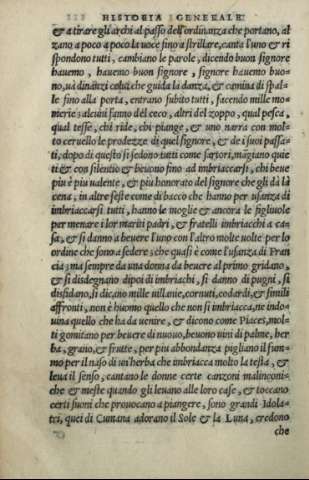 HISTORIA GENERALE
& a tirare gli archi al passo dell'ordinanza che portano, al
zano a poco a poco la uoce fino a strillare, canta l'uno & ri
spondono tutti, cambiano le parole, dicendo buon signore
hauemo, hauemo buon signore, signore hauemo buo-
no, ua dinãzi colui che guida la danza, & camina di spal-
le fino alla porta, entrano subito tutti, facendo mille mo-
merie; alcuni fanno del ceco, altri del zoppo, qual pesca,
qual tesse, chi ride, chi piange, & uno narra con mol-
to ceruello le prodezze di quel signore, & de i suoi passa-
ti, dopo di questo si sedono tutti come sartori, mãgiano quie
ti & con silentio & beuono fino ad imbriaccarsi, chi beue
piu è piu ualente, & piu honorato del signore che gli dà la
cena, in altre feste come di bacco che hanno per usanza di
imbriaccarsi tutti, hanno le moglie & ancora le figliuole
per menare i lor mariti padri, & fratelli imbriacchi a ca-
sa, & si danno a beuere l'uno con l'altro molte uolte per lo
ordine che sono a sedere; che quasi è come l'usanza di Fran
cia; ma sempre da una donna da beuere al primo gridano,
& si disdegnano dipoi di imbriachi, si danno di pugni, si
disfidano, si dicano mille uillanie, cornuti, codardi, & simili
affronti, non è huomo quello che non si imbriacca, ne indo-
uina quello che ha da uenire, & dicono come Piaces, mol-
ti gomitano per beuere di nuouo, beuono uini di palme, her
ba, grano, & frutte, per piu abbondanza pigliano il fum-
mo per il naso di un'herba che imbriacca molto la testa, &
leua il senso, cantano le donne certe canzoni malinconi-
che & meste quando gli leuano alle loro case, & toccano
certi suoni che prouocano a piangere, sono grandi Idola-
tri, quei di Cumana adorano il Sole & la Luna, credono
che